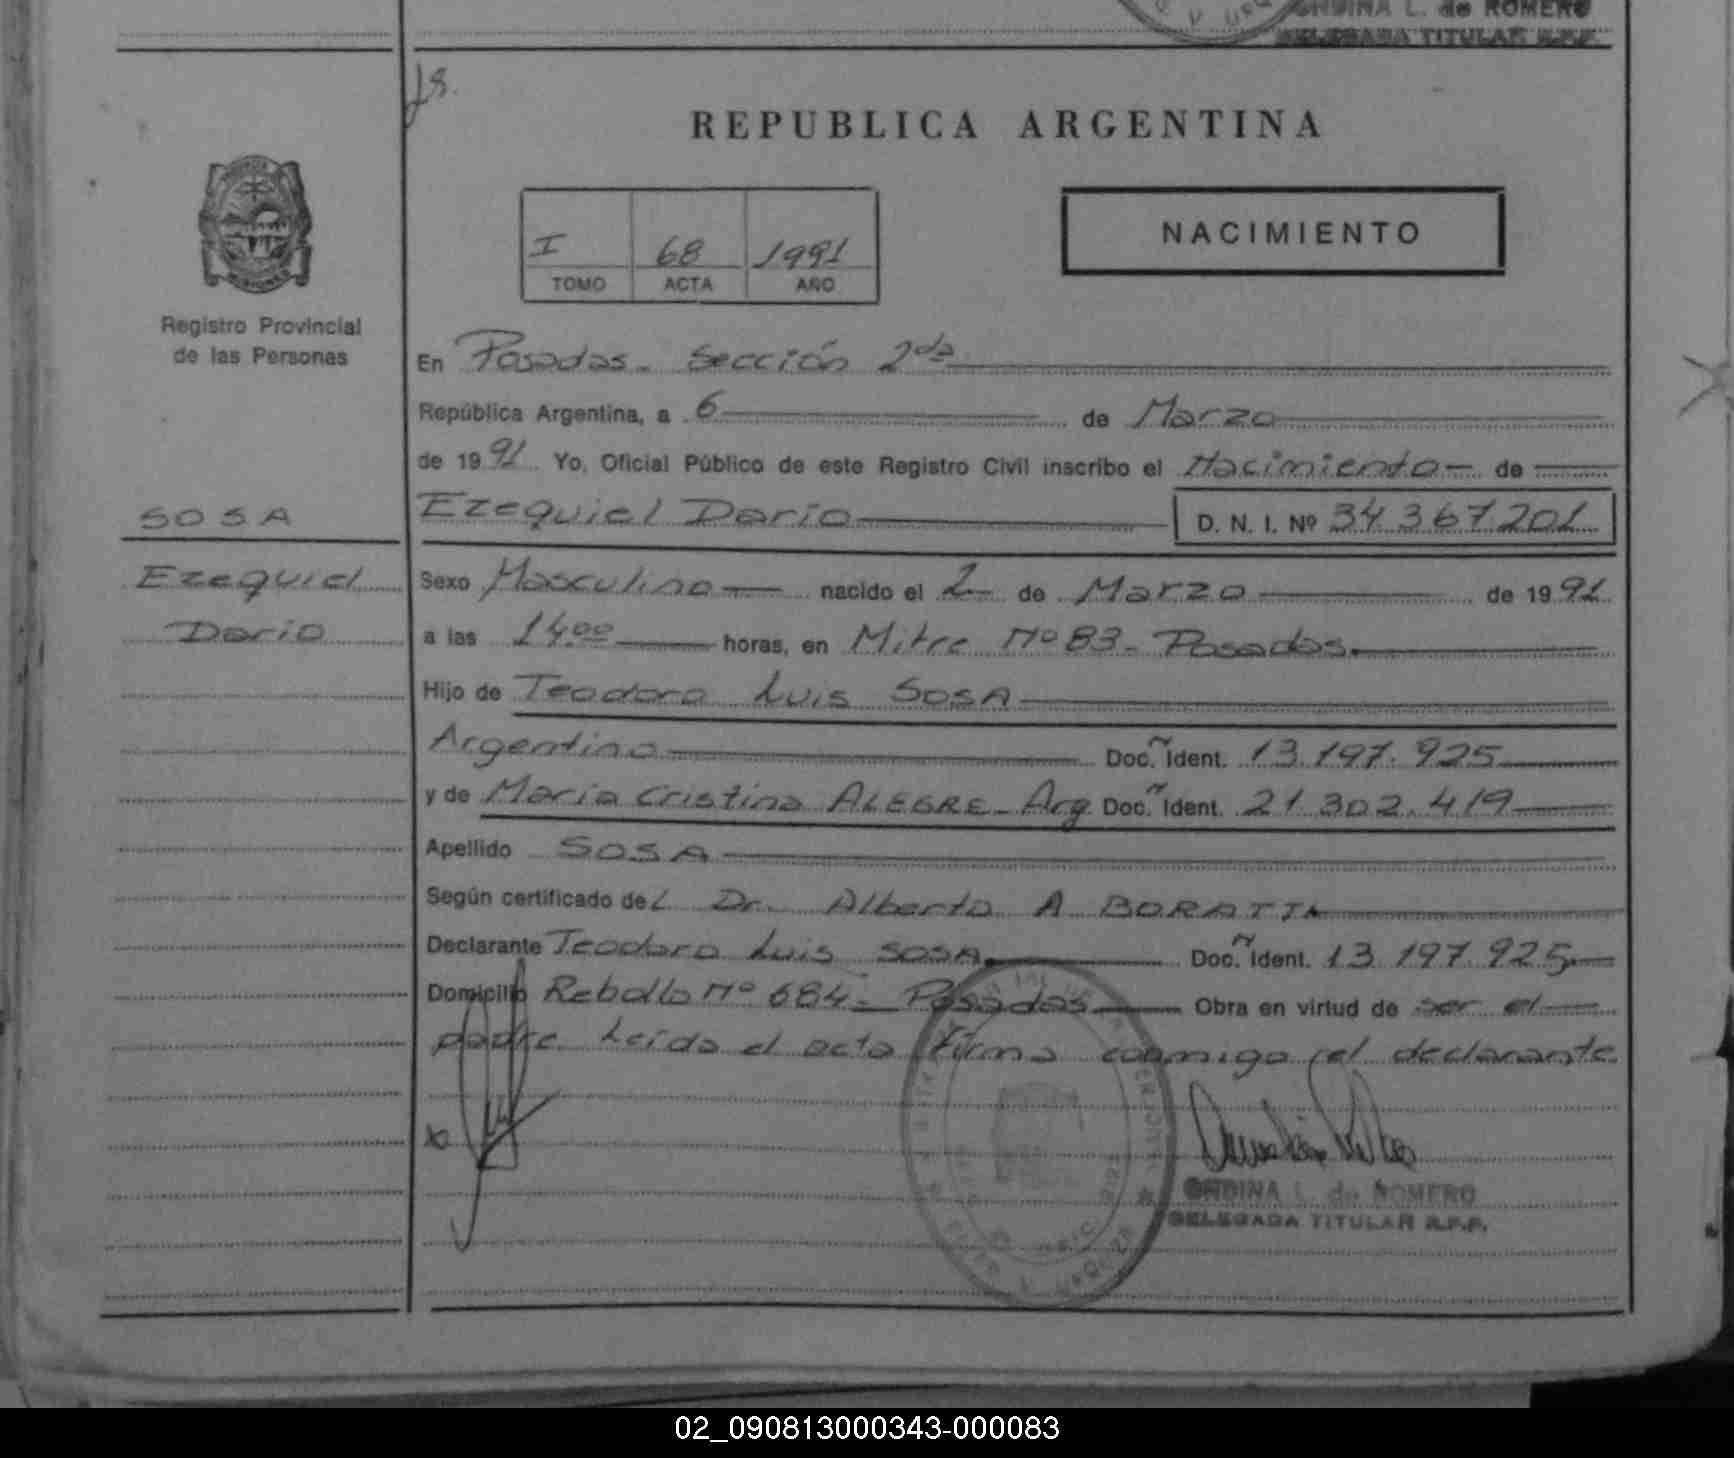 ONDINA L. de ROMERO
DELEGADA TITULAR R.P.P.
REPUBLICA ARGENTINA
NACIMIENTO
I 68 1991
TOMO ACTA AÑO
Registro Provincial
de las Personas
En Posadas - Sección 2da
República Argentina, a 6 de Marzo
de 1991 Yo, Oficial Público de este Registro Civil inscribo el Nacimiento de
SOSA
Ezequiel Dario D. N. I. Nº 34 367 201
Ezequiel
Dario
Sexo Masculino nacido el 2 de Marzo de 1991
a las 14:00 horas, en Mitre Nº 83 - Posadas.
Hijo de Teodoro Luis SOSA
Argentino Doc. Ident. 13.197.925
y de Maria Cristina ALEGRE - Arg Doc. Ident. 21.302.419
Apellido SOSA
Según certificado del Dr. Alberto A BORATTI
Declarante Teodoro Luis SOSA. Doc. Ident. 13.197.925
Domicilio Rebollo Nº 684 - Posadas Obra en virtud de ser el
padre. Leída el acta firma conmigo el declarante
ONDINA L. de ROMERO
DELEGADA TITULAR R.P.P.
02_090813000343-000083